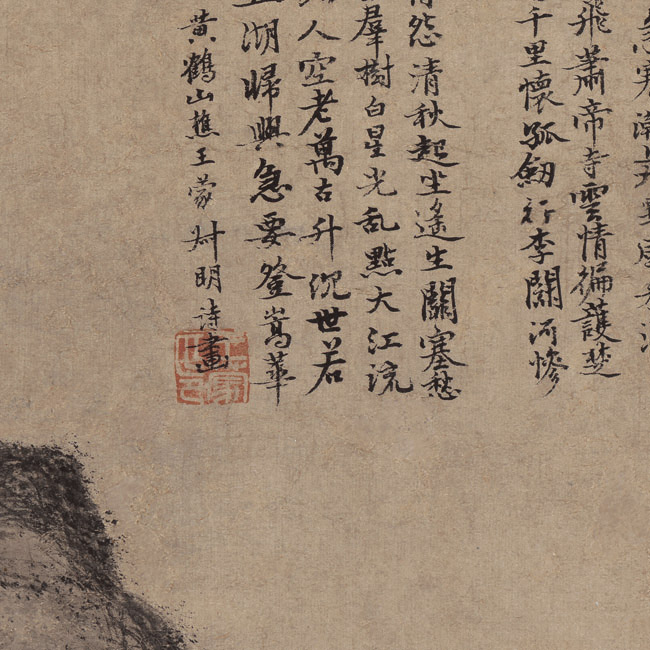 寒
飛蕭帝寺雲情徧護楚
千里懷孤劒行李關河慘
怨清秋起坐遙生關塞愁
羣樹白星光乱點大江流
人空老萬古升沉世若
五湖歸興急要登嵩華
黄鶴山樵王蒙叔明詩畫